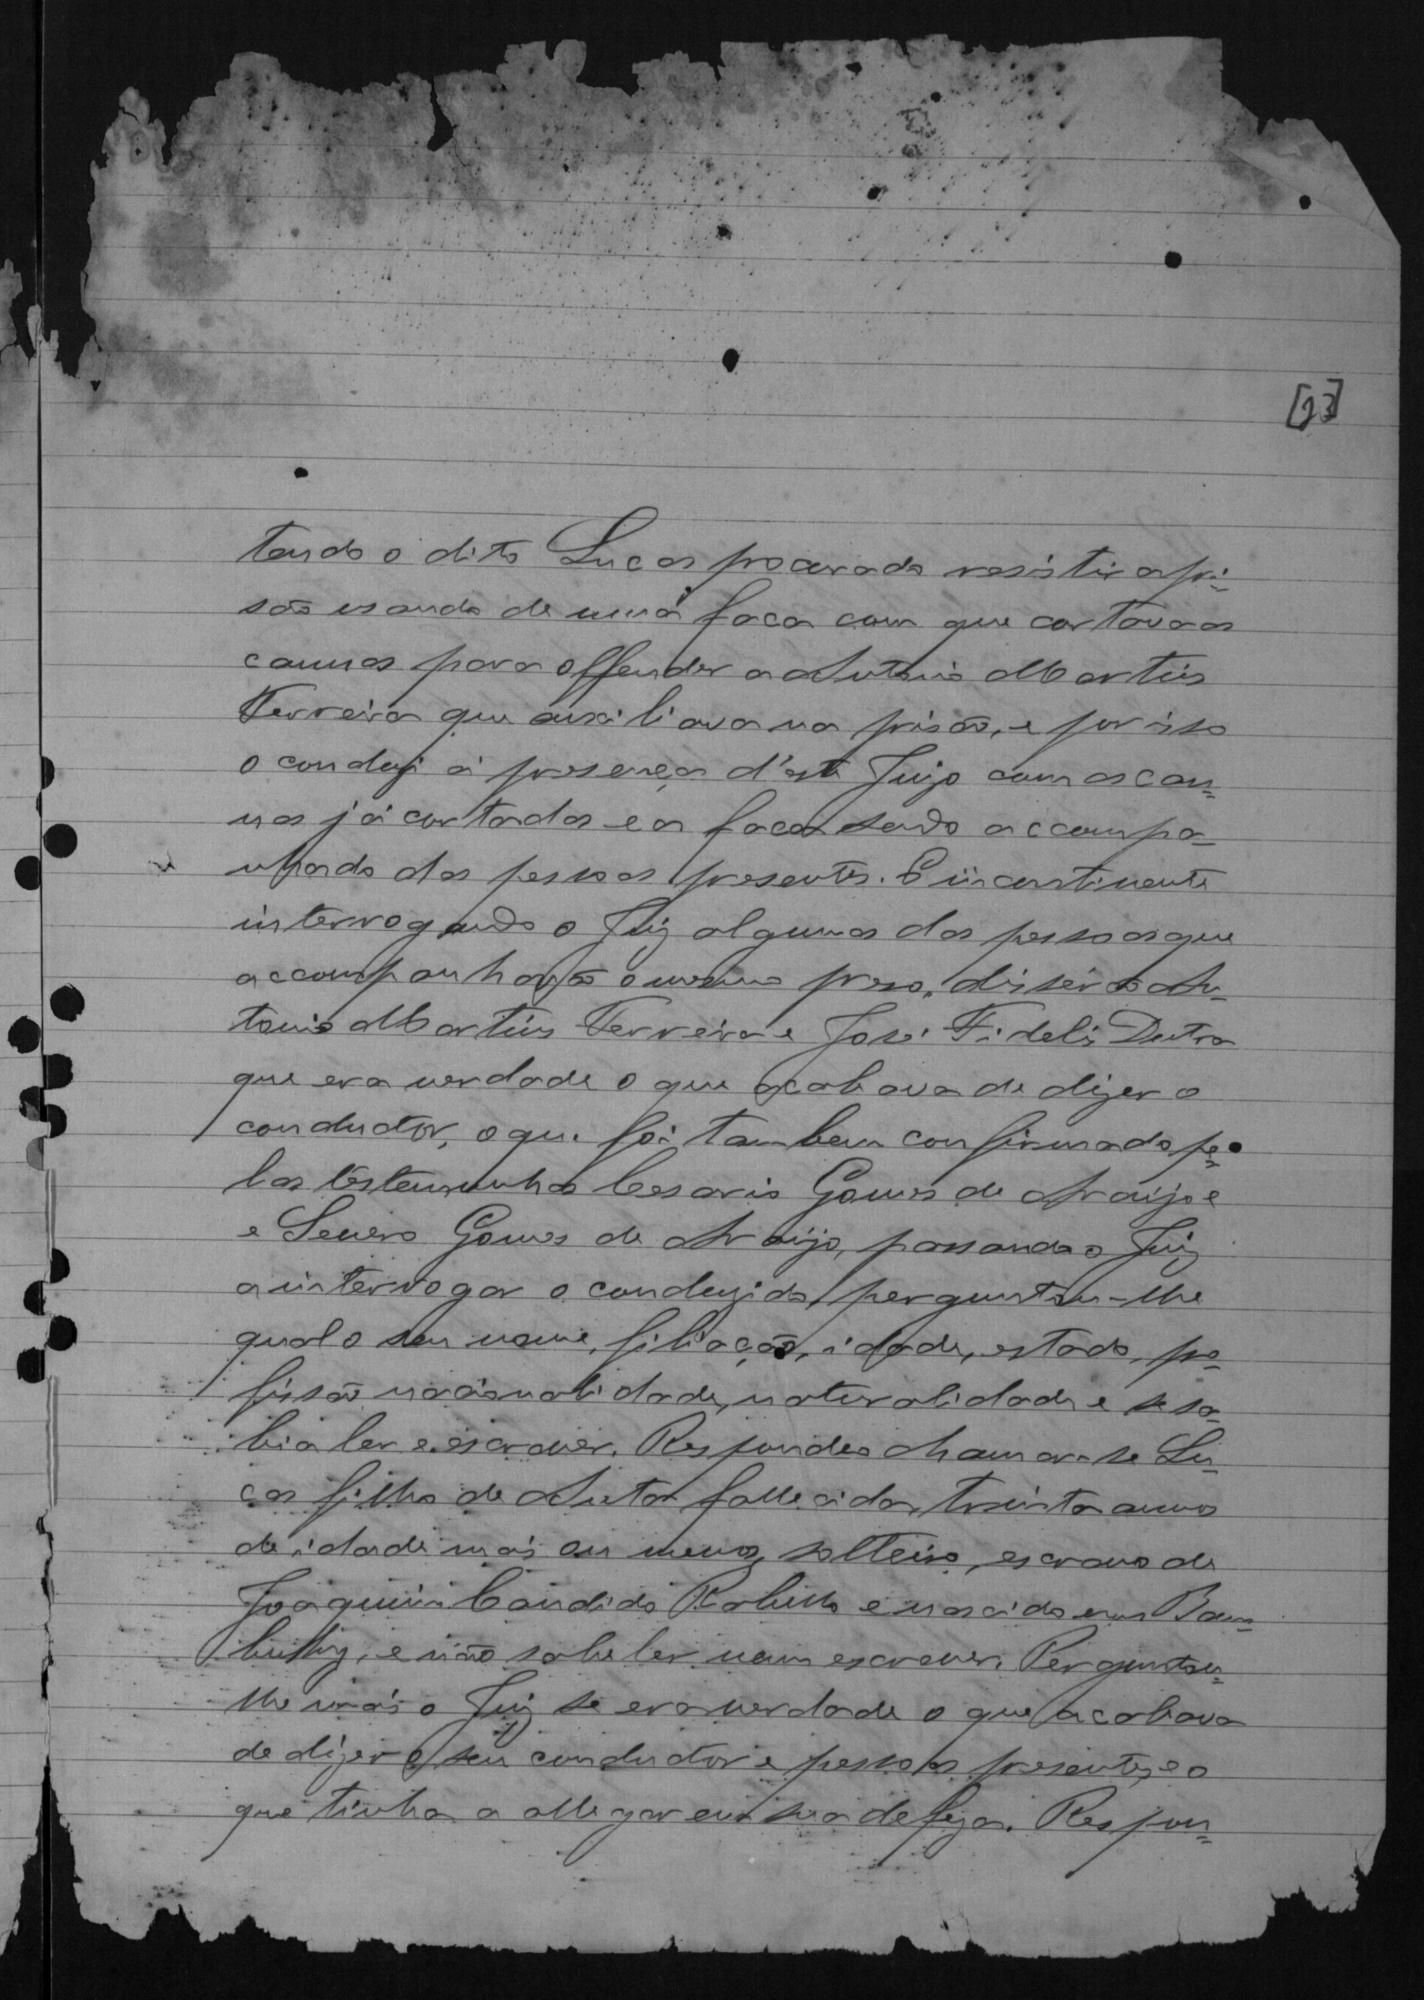 [23]
tando o dito Lucas procurado resistir a pri=
são usando de uma faca com que cortava as
cannas para offender a Antonio Martins
Ferreira que auxiliava na prisão, e por isso
o conduzi á presença d'este Juizo com as can=
nas já cortadas e a faca sendo accompa-
nhado das pessoas presentes. E incontinente
interrogando o Juiz algumas das pessoas que
accompanharão o mesmo preso, disserão An-
tonio Martins Ferreira e José Fidelis Dutra
que era verdade o que acabava de dizer o
conductor, o que foi tambem confirmado pe=
las testemunhas Cesario Gomes de Araujo e
e Severo Gomes de Araujo, passando o Juiz
a interrogar o conduzido, perguntou-lhe
qual o seu nome, filiação, idade, estado, pro-
fissão nacionalidade, naturalidade e se sa-
bia ler e escrever. Respondeo chamar-se Lu-
cas filho de Anta fallecida, trinta annos
de idade mais ou menos, solteiro, escravo de
Joaquim Candido Rabello e nascido em Bam=
buhy, e não sabe ler nem escrever. Perguntou=
lhe mais o Juiz se era verdade o que acabava
de dizer o seu conductor e pessoas presentes, e o
que tinha a allegar em sua defeza. Respon=